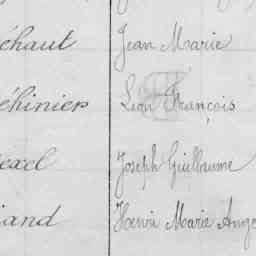 éhaut Jean Marie
éhinier Léon François
exel Joseph Guillaume
iand Henri Marie Ange